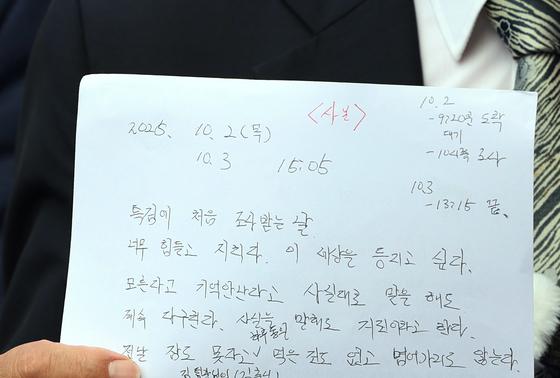 <사본>
2025. 10. 2 (목)
10. 3 15:05
10. 2
-9:20쯤 도착
대기
-10시쯤 조사
10.3
-13:15 끝.
특검에 처음 조사받는 날
너무 힘들고 지치다. 이 세상을 등지고 싶다.
모른다고 기억안난다고 사실대로 말을 해도
계속 다구친다. 사실을 말해도 거짓이라고 한다.
전날 잠도 못자고 먹은 것도 없고 넘어가지도 않는다.